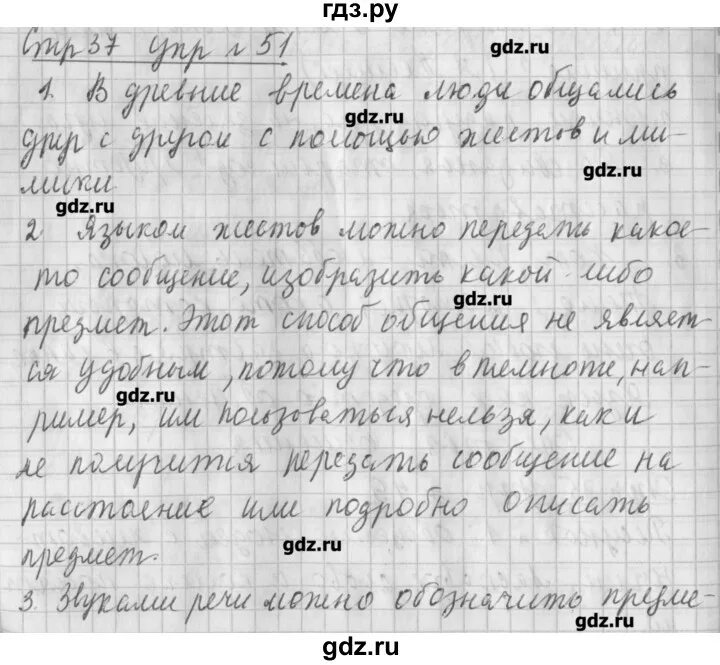 гдз.ру
Стр 37 упр № 51
gdz.ru
1. В древние времена люди общались
gdz.ru
друг с другом с помощью жестов и ми-
gdz.ru
мики
gdz.ru
2 Языком жестов можно передать какое-
то сообщение, изобразить какой-либо
gdz.ru
предмет. Этот способ общения не являет-
ся удобным, потому что в темноте, нап-
gdz.ru
ример, им пользоваться нельзя, как и
не получится передать сообщение на
расстоение или подробно описать
gdz.ru
предмет.
3. Звуками речи можно обозначить предме-
gdz.ru
gdz.ru